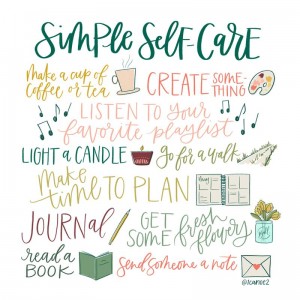 SIMPLE SELF-CARE
Make a cup of
coffee or tea
CREATE SOME-
THING
LISTEN TO your
favorite playlist
LIGHT A CANDLE
go for a walk
Make
time TO PLAN
JOURNAL
GET
SOME fresh
flowers
read a
BOOK
Send someone a note